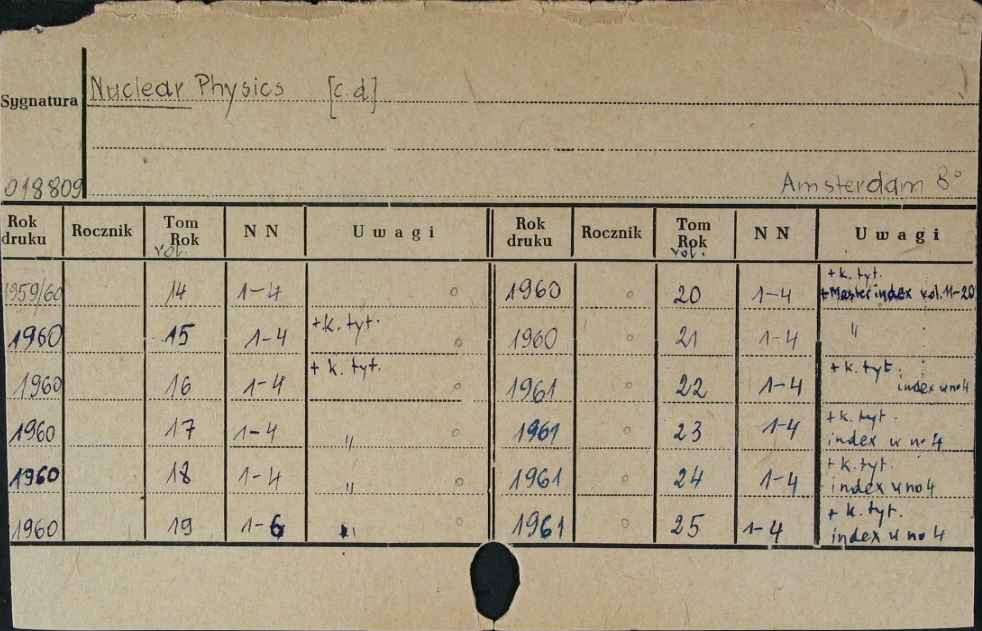 Nuclear Physics [c.d]
Sygnatura
018809
Amsterdam 8°
Rok druku Rocznik Tom Rok vol. N N Uwagi Rok druku Rocznik Tom Rok vol. N N Uwagi
1959/60 14 1-4 1960 20 1-4 + k. tyt. + Master index vol. 11-20
1960 15 1-4 + k. tyt. 1960 21 1-4 "
1960 16 1-4 + k. tyt. 1961 22 1-4 + k. tyt. index w no 4
1960 17 1-4 " 1961 23 1-4 + k. tyt. index w no 4
1960 18 1-4 " 1961 24 1-4 + k. tyt. index w no 4
1960 19 1-6 " 1961 25 1-4 + k. tyt. index w no 4